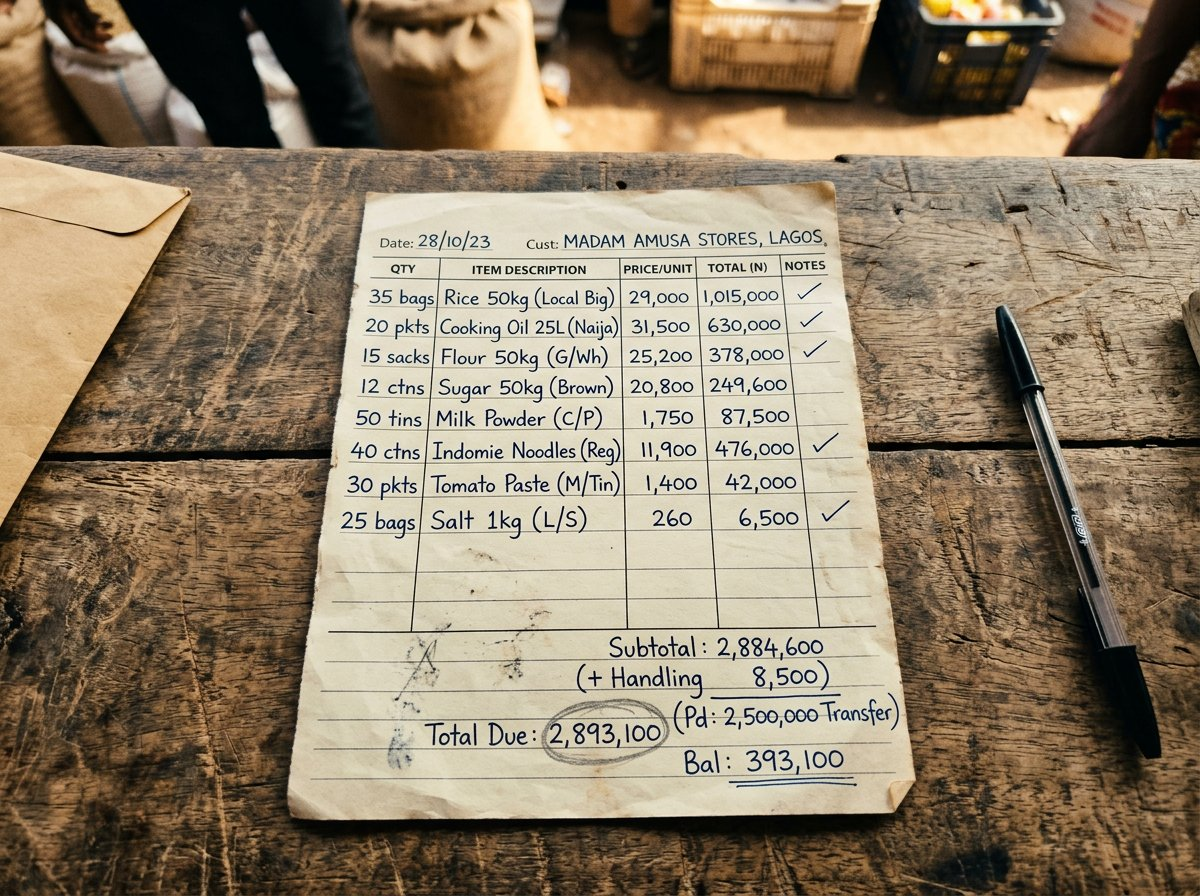 Date: 28/10/23 Cust: MADAM AMUSA STORES, LAGOS.
QTY ITEM DESCRIPTION PRICE/UNIT TOTAL (N) NOTES
35 bags Rice 50kg (Local Big) 29,000 1,015,000 ✓
20 pkts Cooking Oil 25L (Naija) 31,500 630,000 ✓
15 sacks Flour 50kg (G/Wh) 25,200 378,000 ✓
12 ctns Sugar 50kg (Brown) 20,800 249,600
50 tins Milk Powder (C/P) 1,750 87,500
40 ctns Indomie Noodles (Reg) 11,900 476,000 ✓
30 pkts Tomato Paste (M/Tin) 1,400 42,000
25 bags Salt 1kg (L/S) 260 6,500 ✓
Subtotal: 2,884,600
(+ Handling 8,500)
(Pd: 2,500,000 Transfer)
Total Due: 2,893,100
Bal: 393,100